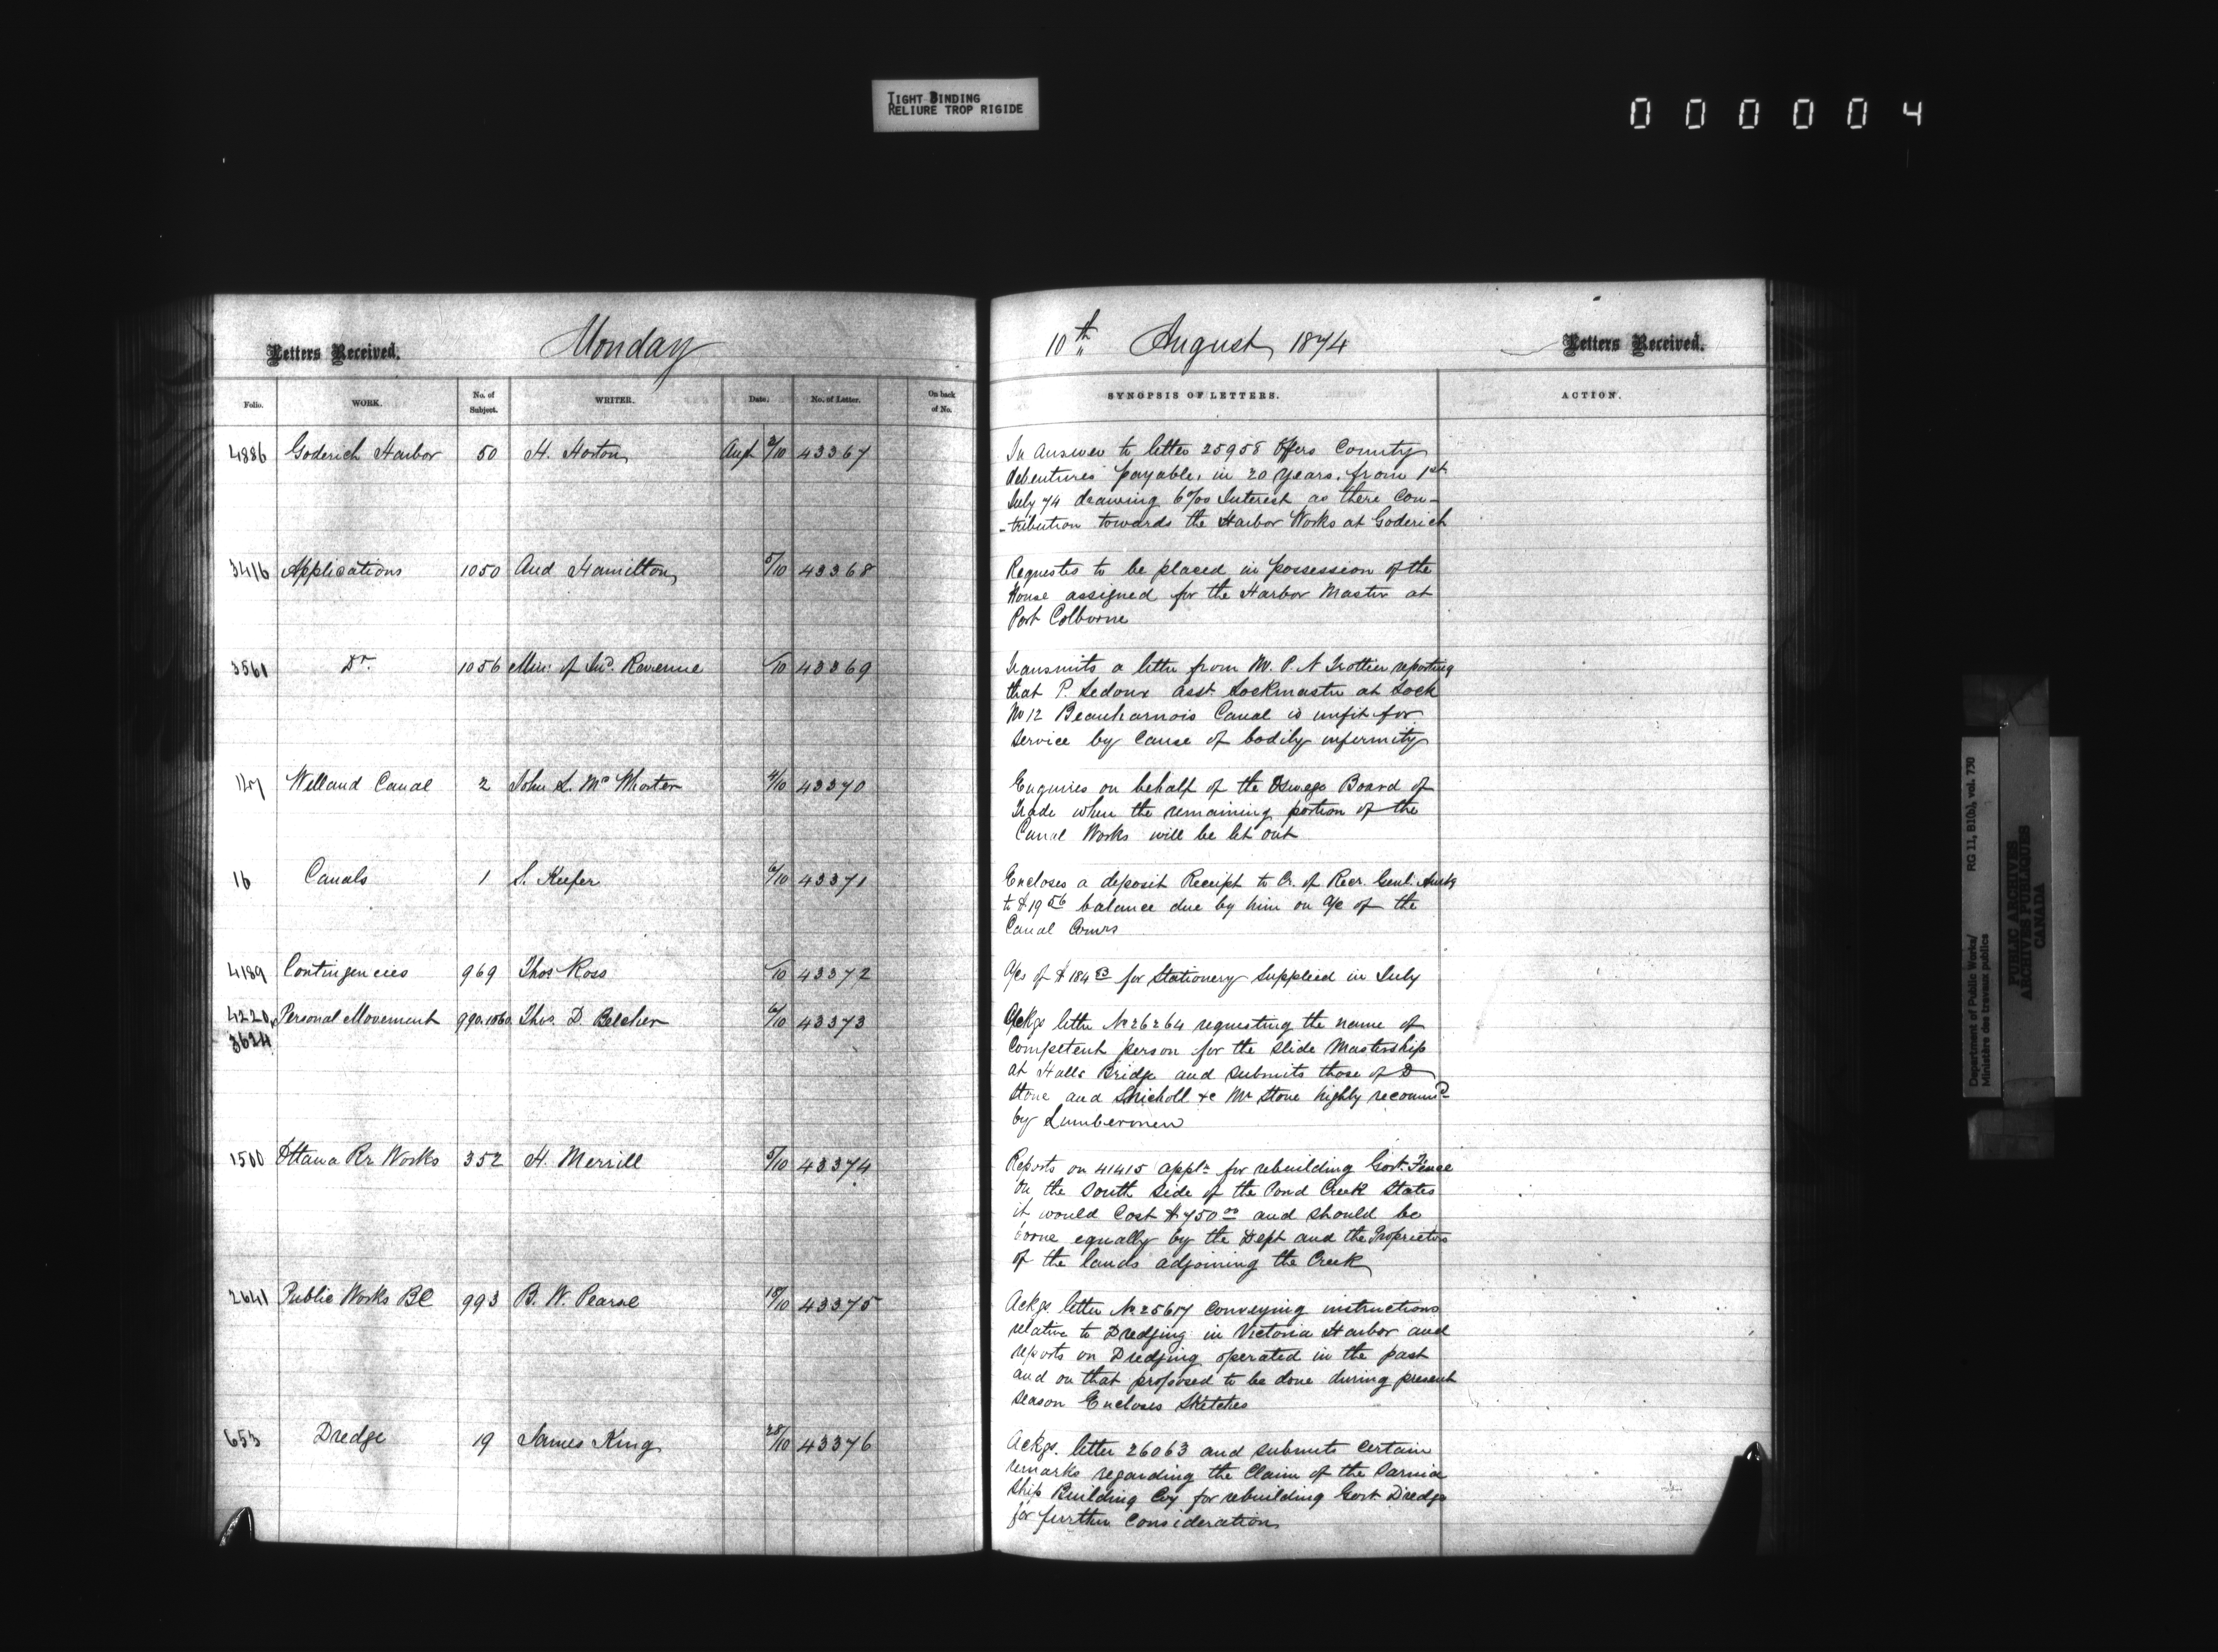 TIGHT BINDING
RELIURE TROP RIGIDE
000004
Letters Received.
Monday
Folio.
WORK.
No. of Subject.
WRITER.
Date.
No. of Letter.
On back of No.
4886 Goderich Harbor 50 H. Horton Augt 8/10 43367
3416 Applications 1050 Aud Hamilton 5/10 43368
3561 Do. 1056 Min: of Ind. Revenue /10 43369
147 Welland Canal 2 John L. McWhorter 4/10 43370
16 Canals 1 S. Keefer 6/10 43371
4189 Contingencies 969 Thos Ross /10 43372
4220 Personal Movement 990.1060. Thos. D Belcher 6/10 43373
3624
1500 Ottawa Rr Works 352 H. Merrill 5/10 43374
2641 Public Works BC 993 B. W. Pearse 18/10 43375
653 Dredge 19 James King 28/10 43376
10th August 1874
Letters Received.
SYNOPSIS OF LETTERS.
ACTION.
In Answer to letter 25958 Offers County
debentures payable, in 20 years, from 1st
July 74 drawing 6% Interest as there Con-
-tribution towards the Harbor Works at Goderich
Requests to be placed in possession of the
House assigned for the Harbor Master at
Port Colborne
Transmits a letter from Mr. P. N Trottier reporting
that P. Ledoux asst. Lockmaster at Lock
No 12 Beauharnois Canal is unfit for
service by cause of bodily infirmity
Enquires on behalf of the Oswego Board of
Trade when the remaining portion of the
Canal Works will be let out
Encloses a deposit Receipt to Cr. of Recr. Genl. Amtg
to $19 56 balance due by him on a/c of the
Canal Comrs
A/cs of $184 83 for Stationery supplied in July
Ackgs letter No 26264 requesting the name of
Competent person for the Slide Mastership
at Halls Bridge and submits those of D
Stone and Snicholl &c Mr Stone highly recommd
by Lumbermen
Reports on 41415 appln for rebuilding Govt. Fence
on the South side of the Pond Creek States
it would Cost $750 00 and should be
borne equally by the Dept and the Proprietors
of the lands adjoining the Creek
Ackgs. letter No 25617 conveying instructions
relative to Dredging in Victoria Harbor and
reports on Dredging operated in the past
and on that proposed to be done during present
season Encloses Sketches
Ackgs. letter 26063 and submits certain
remarks regarding the Claim of the Sarnia
Ship Building Coy for rebuilding Govt Dredge
for further Consideration
Department of Public Works/ RG 11, B1(b), vol. 730
Ministère des travaux publics
PUBLIC ARCHIVES
ARCHIVES PUBLIQUES
CANADA